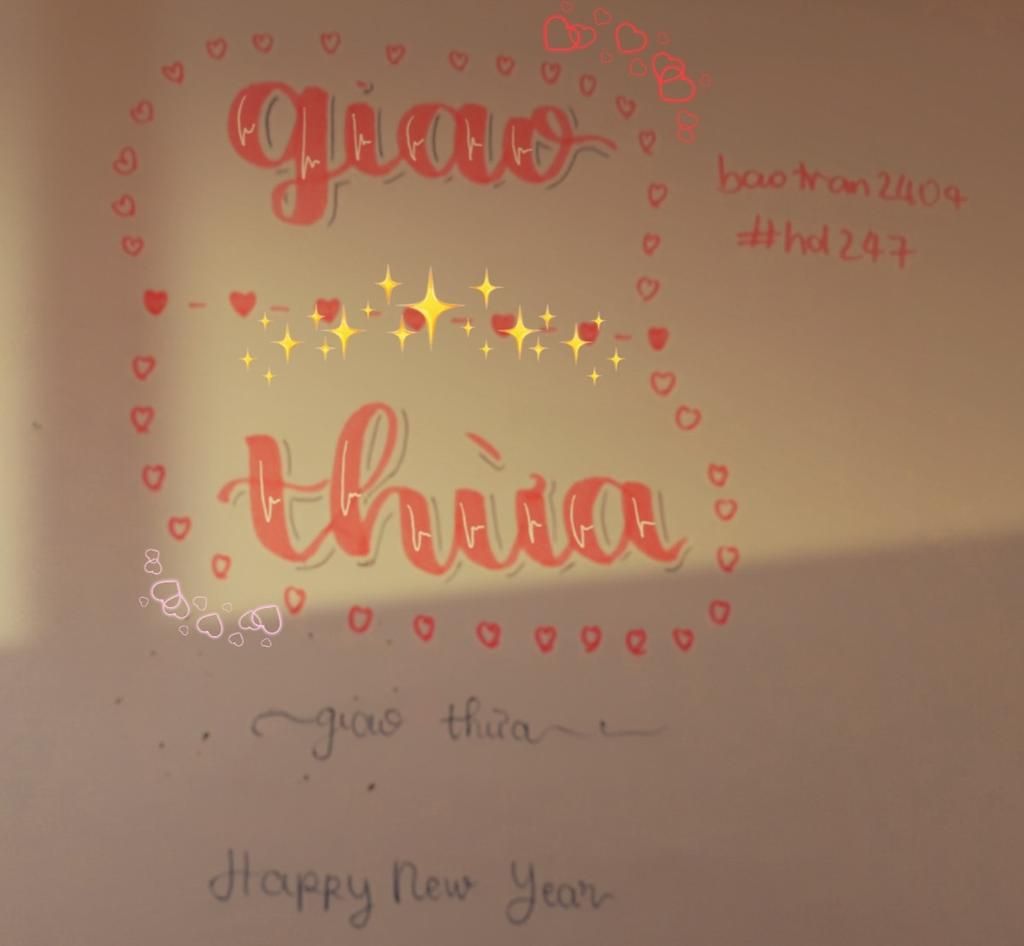 giao
baotran2404
#hd247
thừa
giao thừa
Happy New Year